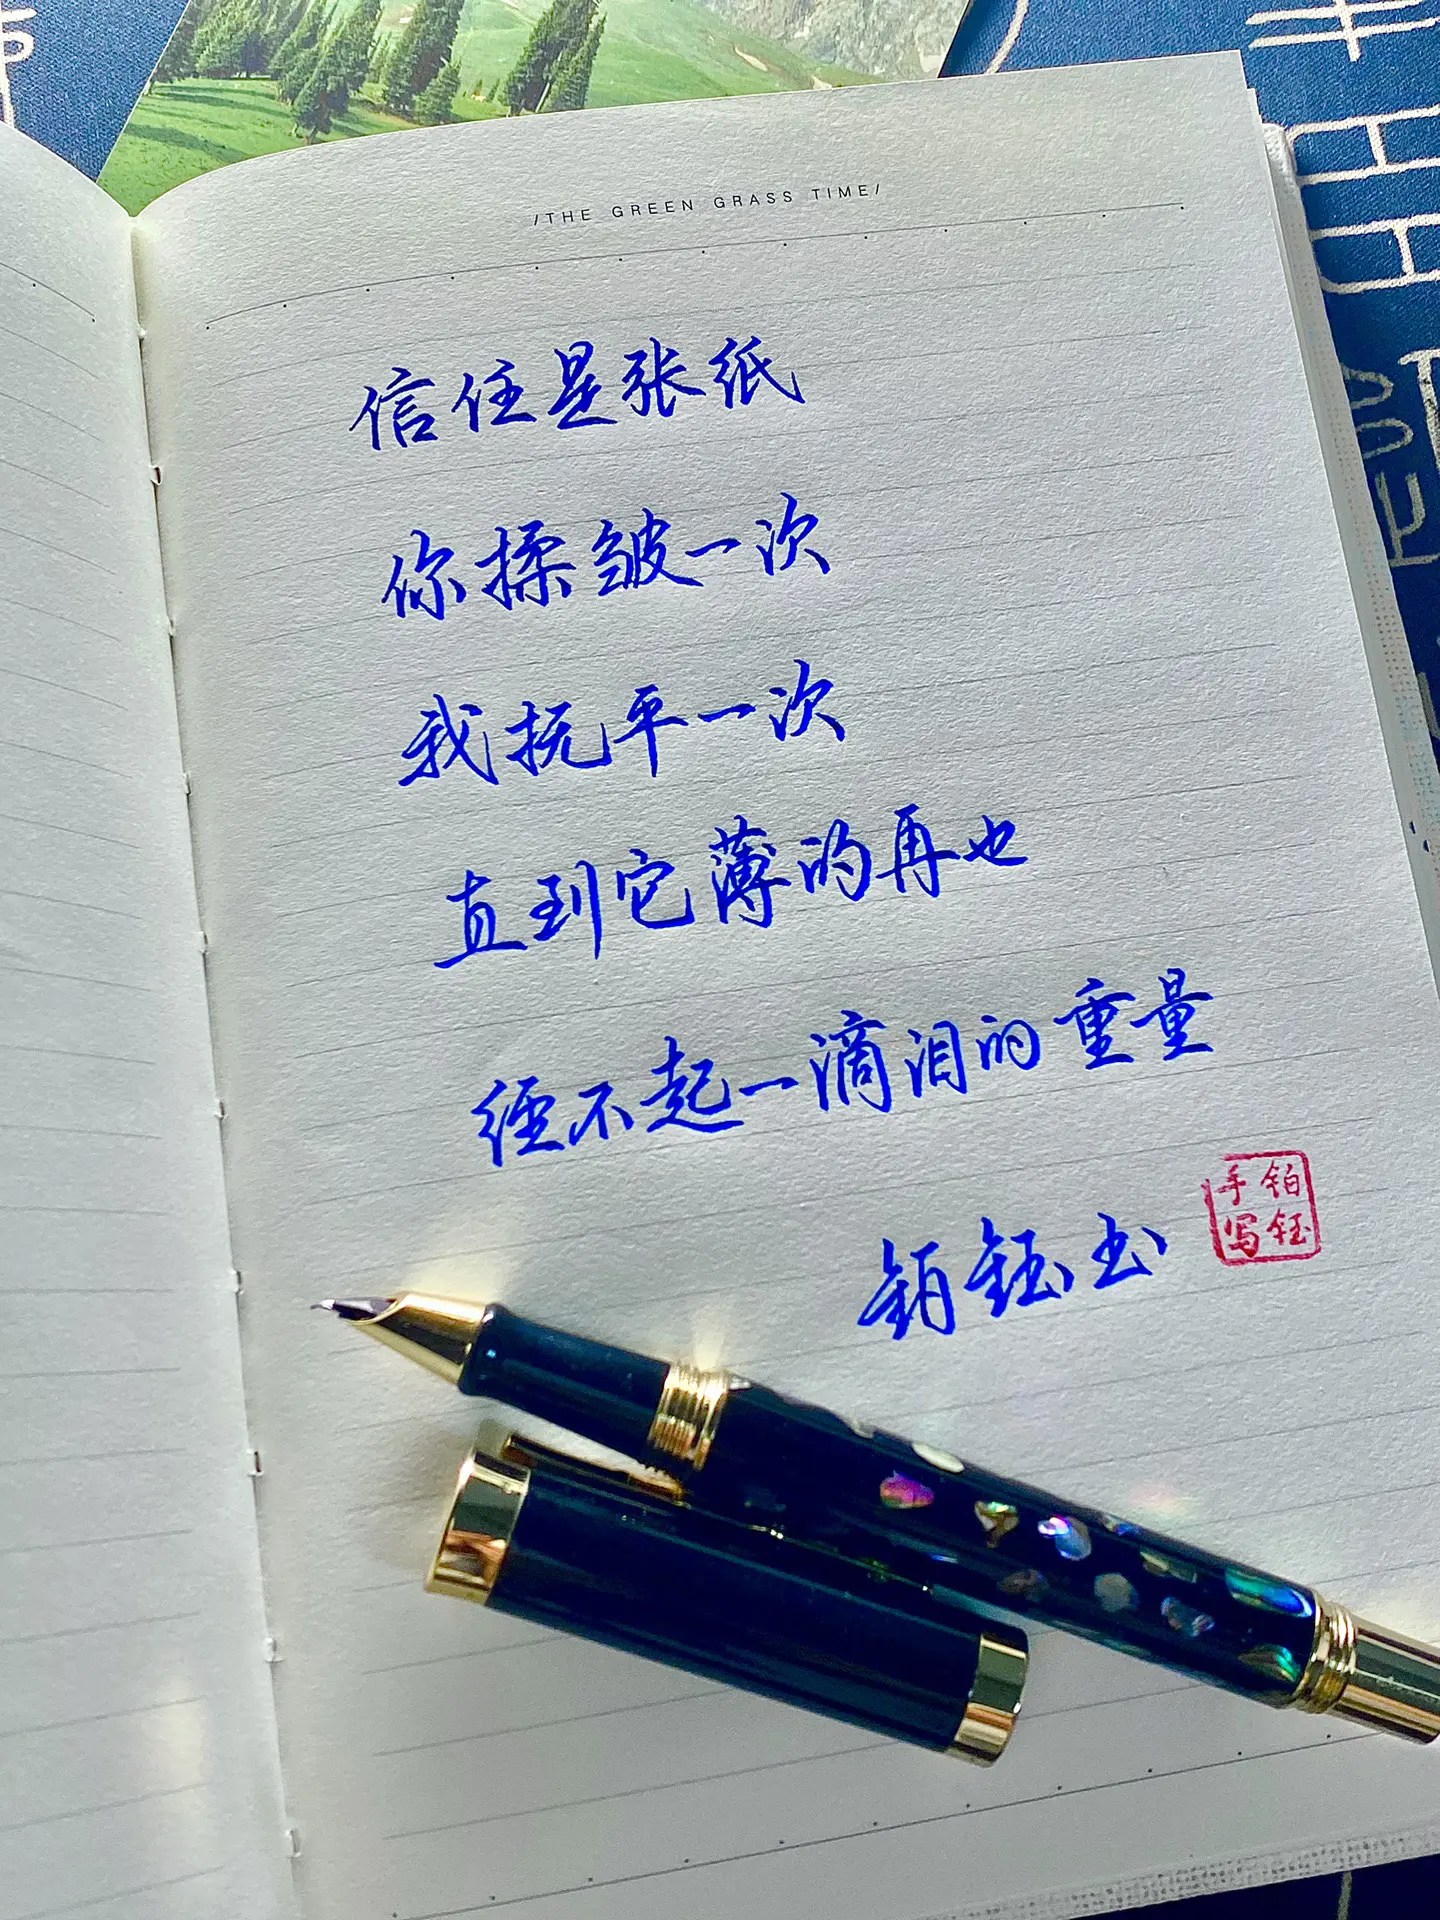 /THE GREEN GRASS TIME/
信任是张纸
你揉皱一次
我抚平一次
直到它薄的再也
经不起一滴泪的重量
铂钰书
铂钰
手写